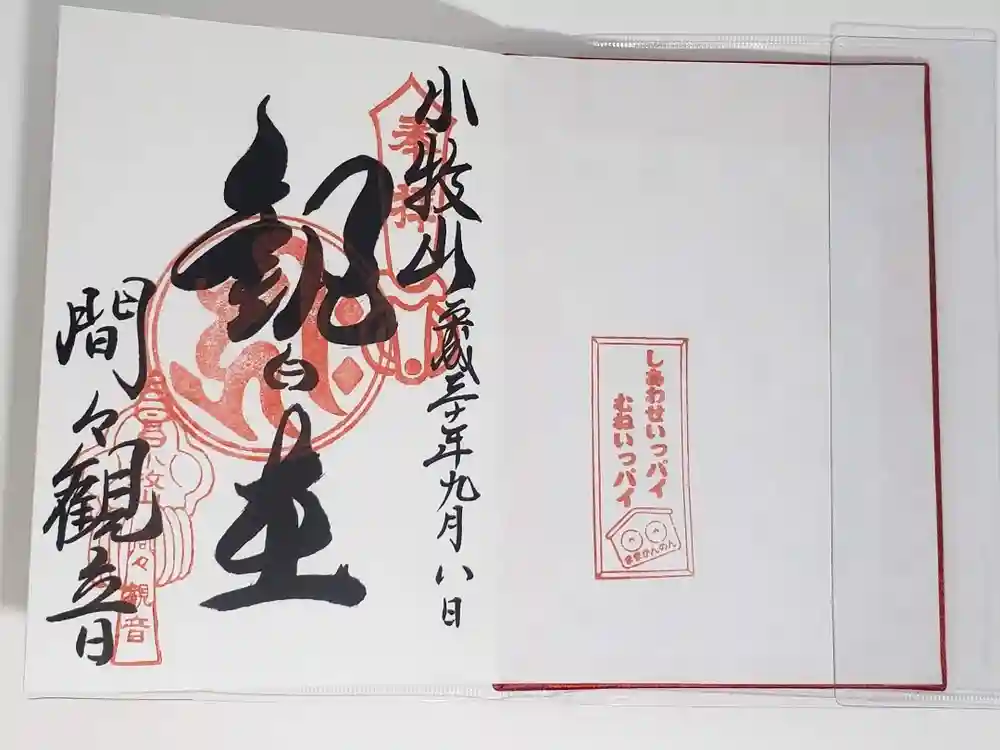 しあわせいっパイ
むねいっパイ
ままかんのん
奉拝
小牧山
平成三十年九月八日
間々観音
小牧山間々観音